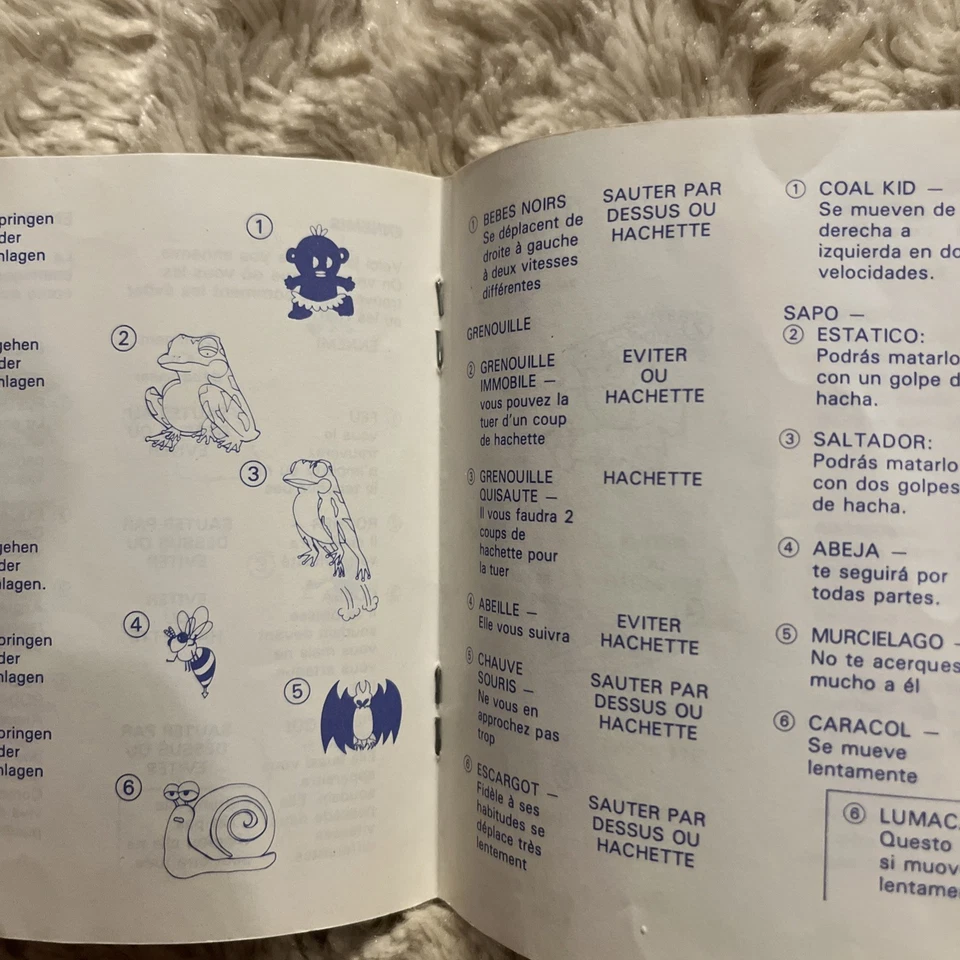 pringen
der
nlagen
gehen
der
nlagen
gehen
der
nlagen.
pringen
der
nlagen
pringen
der
nlagen
①
②
③
④
⑤
⑥
① BEBES NOIRS
Se déplacent de
droite à gauche
à deux vitesses
différentes
SAUTER PAR
DESSUS OU
HACHETTE
GRENOUILLE
② GRENOUILLE
IMMOBILE —
vous pouvez la
tuer d'un coup
de hachette
EVITER
OU
HACHETTE
③ GRENOUILLE
QUISAUTE —
Il vous faudra 2
coups de
hachette pour
la tuer
HACHETTE
④ ABEILLE —
Elle vous suivra
EVITER
HACHETTE
⑤ CHAUVE
SOURIS —
Ne vous en
approchez pas
trop
SAUTER PAR
DESSUS OU
HACHETTE
⑥ ESCARGOT —
Fidèle à ses
habitudes se
déplace très
lentement
SAUTER PAR
DESSUS OU
HACHETTE
① COAL KID —
Se mueven de
derecha a
izquierda en do
velocidades.
SAPO —
② ESTATICO:
Podrás matarlo
con un golpe d
hacha.
③ SALTADOR:
Podrás matarlo
con dos golpes
de hacha.
④ ABEJA —
te seguirá por
todas partes.
⑤ MURCIELAGO —
No te acerques
mucho a él
⑥ CARACOL —
Se mueve
lentamente
⑥ LUMAC
Questo
si muov
lentame